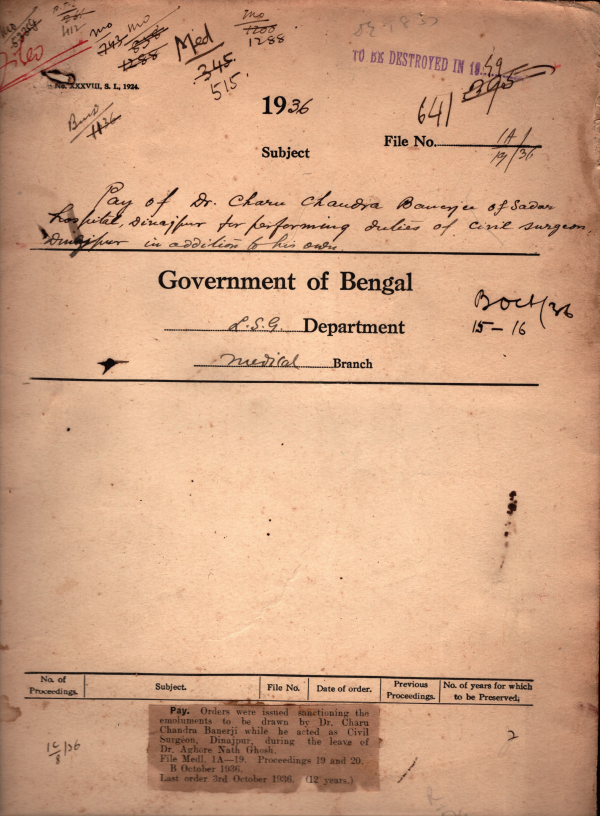 mo
1200
1288
412
mo mo
743 838
1288
Med
345
515.
TO BE DESTROYED IN 19 49
395
No. XXXVIII, S. I., 1924.
1936
641
Subject
File No. 1A/
19/36
Pay of Dr. Charu Chandra Banerjee of Sadar
hospital, Dinajpur for performing duties of Civil Surgeon
Dinajpur in addition to his own
Government of Bengal
L.S.G. Department
B Oct/36
15-16
Medical Branch
No. of Proceedings. Subject. File No. Date of order. Previous Proceedings. No. of years for which to be Preserved.
Pay. Orders were issued sanctioning the
emoluments to be drawn by Dr. Charu
Chandra Banerji while he acted as Civil
Surgeon, Dinajpur, during the leave of
Dr. Aghore Nath Ghosh.
File Medl. 1A—19. Proceedings 19 and 20.
B October 1936.
Last order 3rd October 1936. (12 years.)